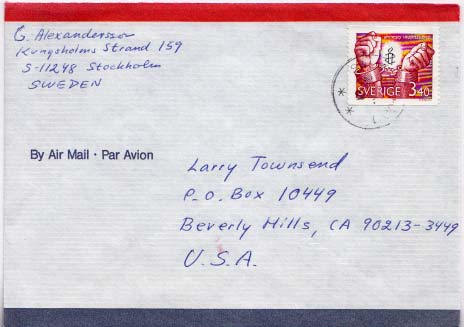 G. Alexandersson
Kungsholms Strand 159
S-11248 Stockholm
SWEDEN
SVERIGE 3.40
By Air Mail · Par Avion
Larry Townsend
P.O. Box 10449
Beverly Hills, CA 90213-3449
U.S.A.